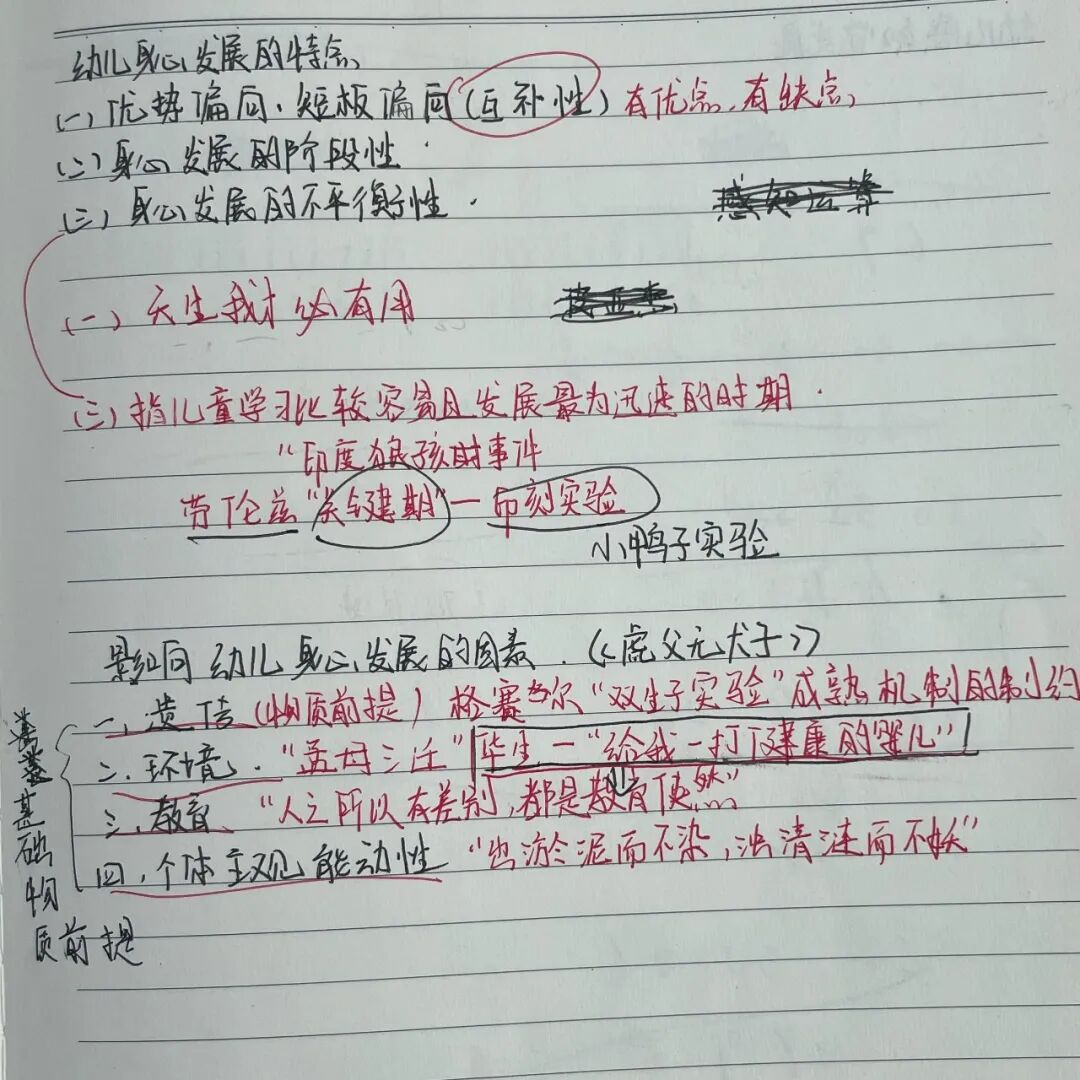 幼儿身心发展的特点
(一)优势偏向、短板偏向(互补性)有优点,有缺点,
(二)身心发展的阶段性.
(三)身心发展的不平衡性.
(一)天生我才必有用
(三)指儿童学习比较容易且发展最为迅速的时期.
"印度狼孩时事件
劳伦兹"关键期"—印刻实验
小鸭子实验
影响幼儿身心发展的因素.《虎父无犬子》
一、遗传(物质前提)格赛尔"双生子实验"成熟机制的制约
二、环境."孟母三迁"华生—"给我一打健康的婴儿"
三、教育、"人之所以有差别,都是教育使然"
四、个体主观能动性"出淤泥而不染,浊清涟而不妖"
基础物质前提